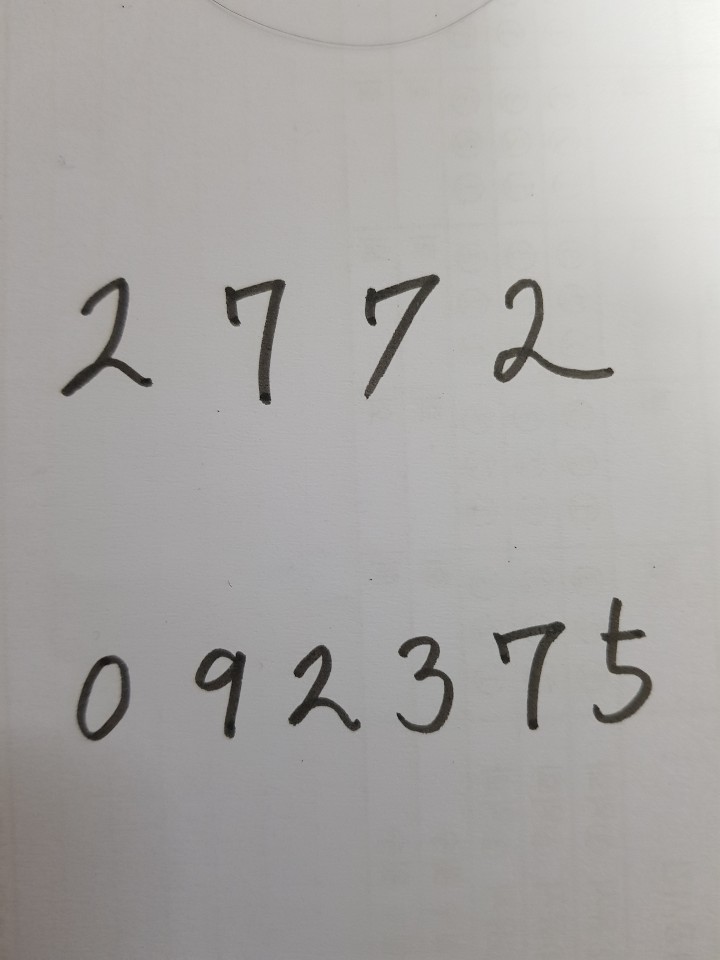 2 7 7 2
0 9 2 3 7 5